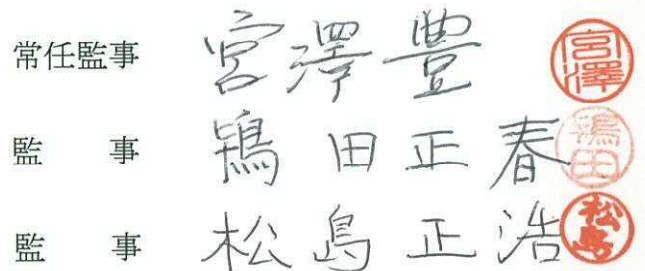 常任監事 宮澤豊 宮澤
監事 鴇田正春 鴇田
監事 松島正浩 松島